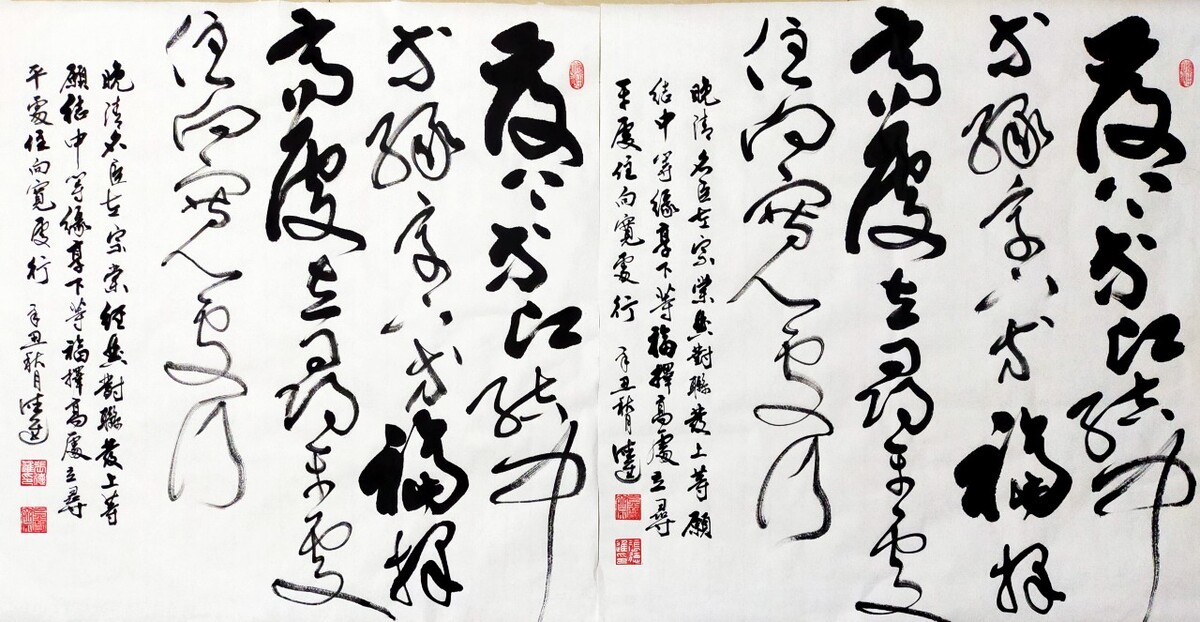 發上等願結中
等緣享下等福擇
高處立尋平處
住向寬處行
晚清名臣左宗棠典對聯發上等願
結中等緣享下等福擇高處立尋
平處住向寬處行 辛丑秋月
發上等願結中
等緣享下等福擇
高處立尋平處
住向寬處行
晚清名臣左宗棠經典對聯發上等
願結中等緣享下等福擇高處立尋
平處住向寬處行 辛丑秋月